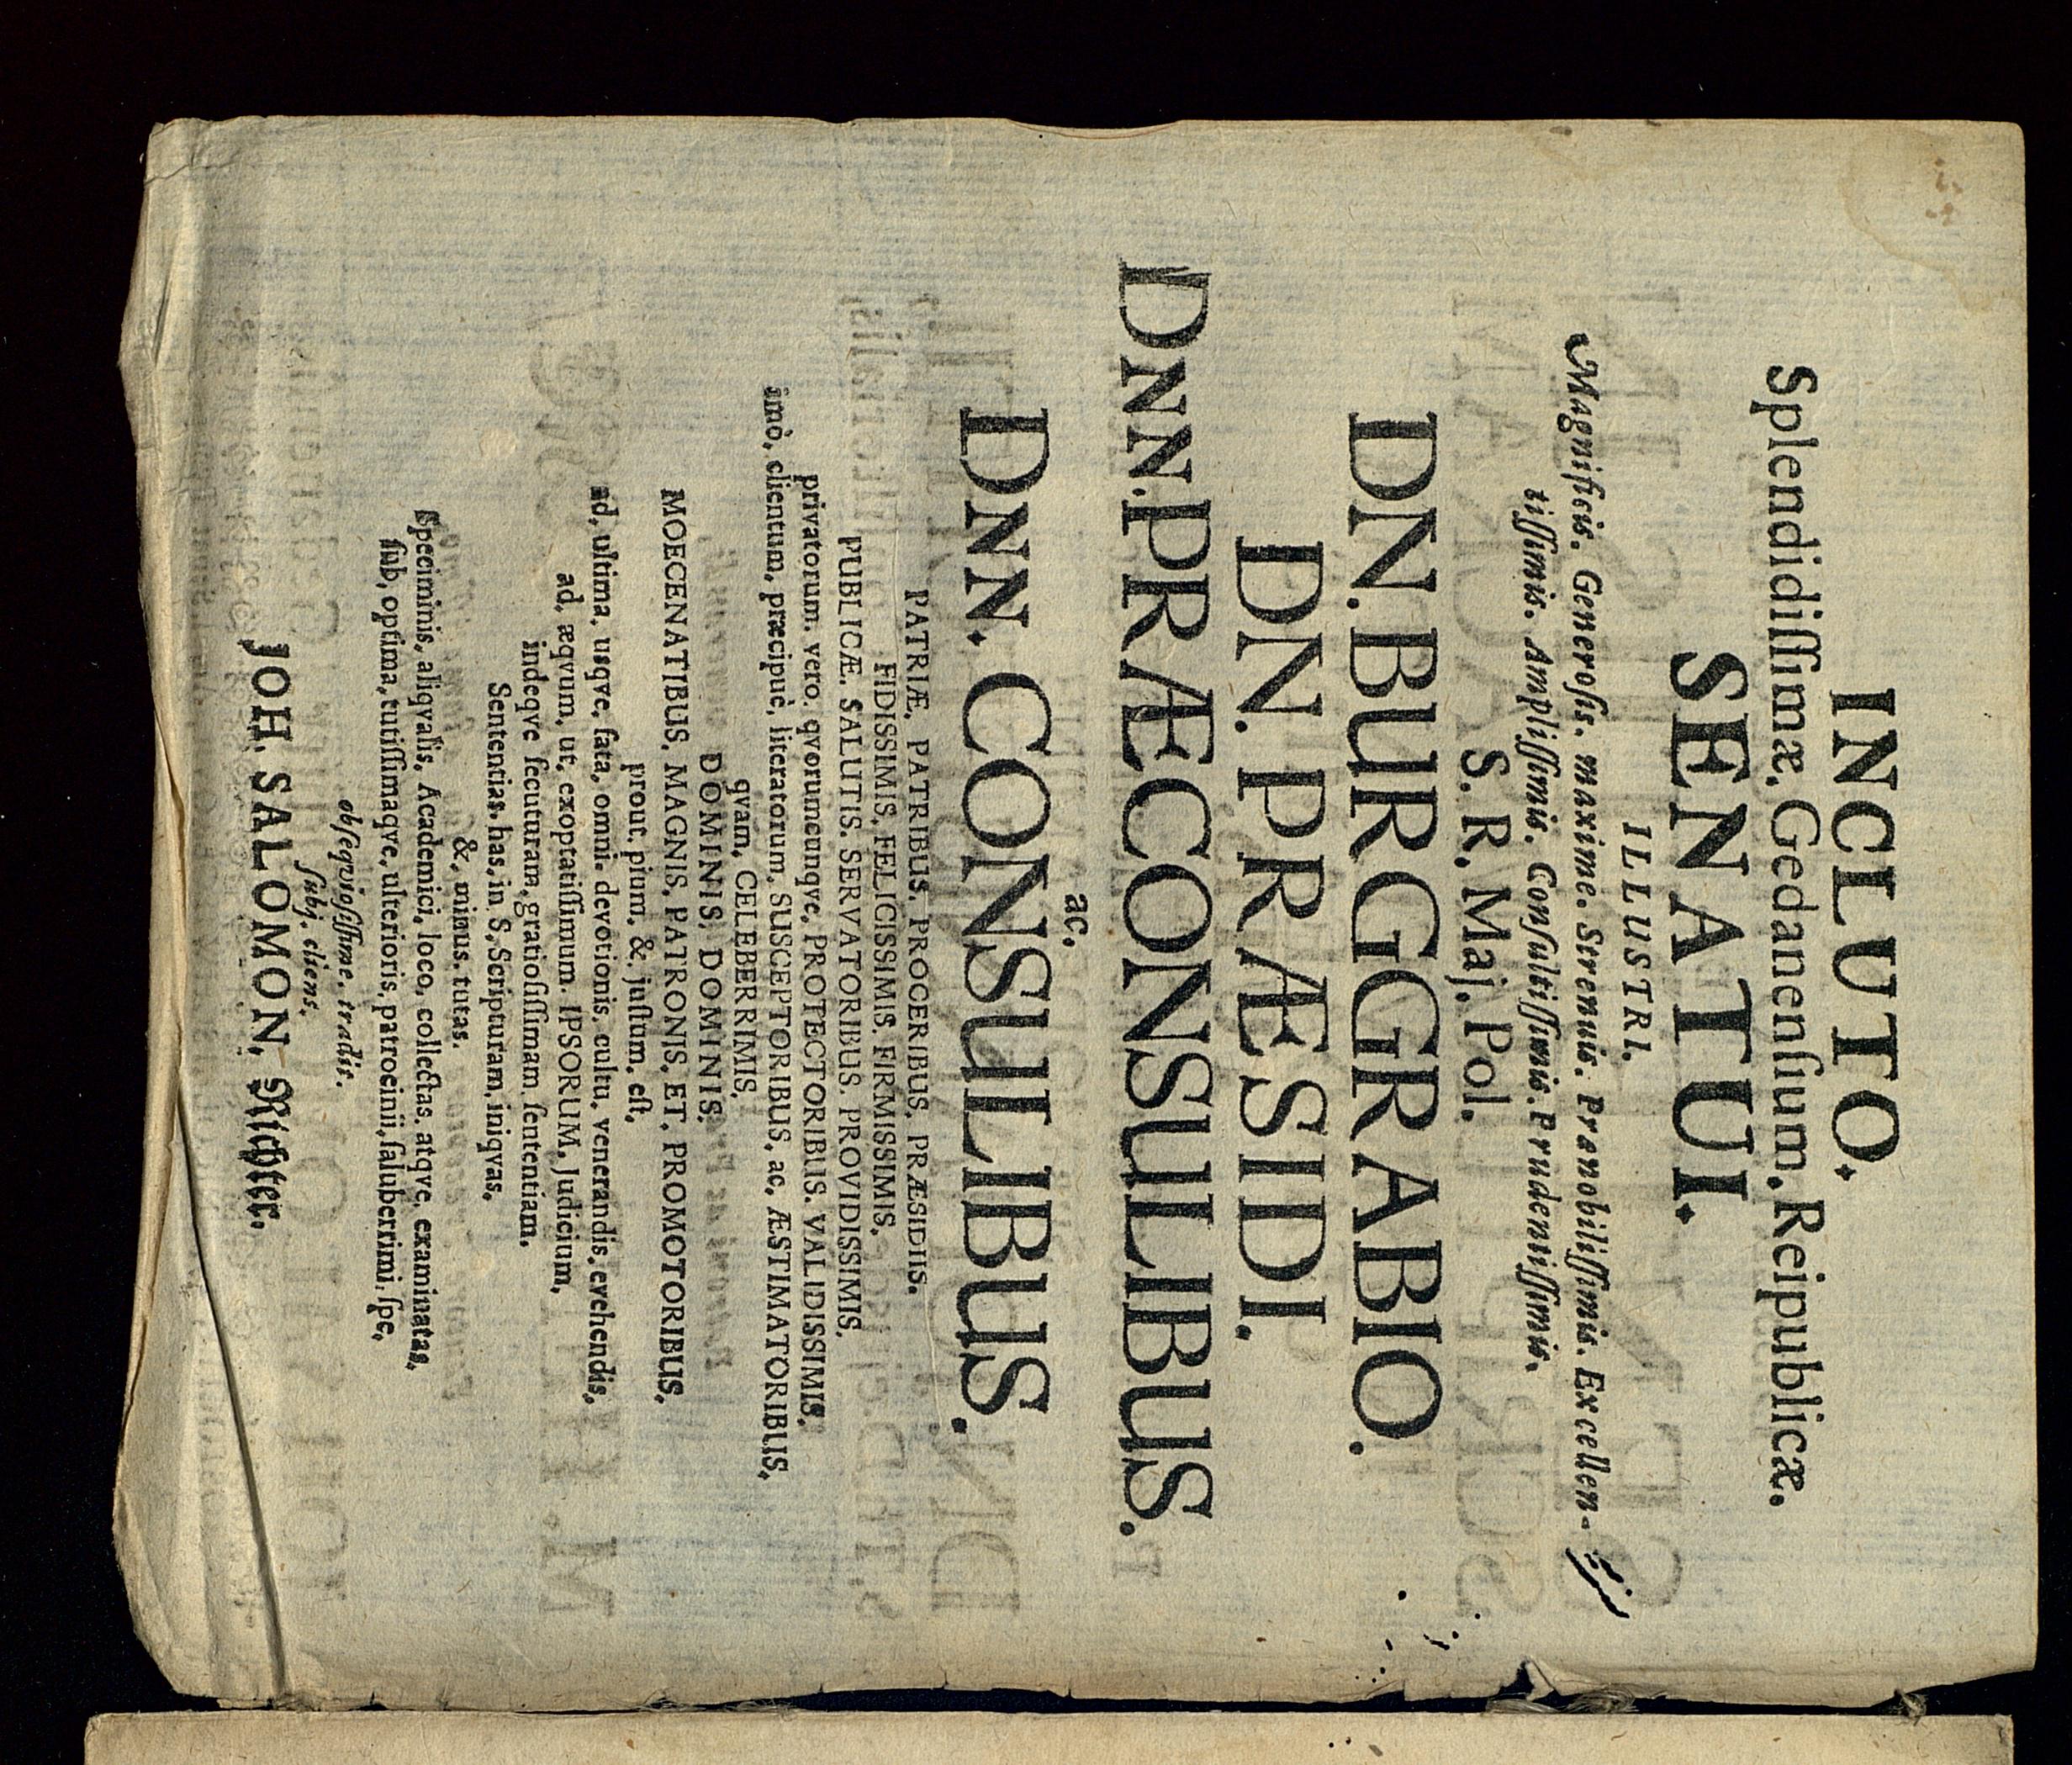 INCLUTO.
Splendidiſſimæ. Gedanenſium. Reipublicæ.
SENATUI.
ILLUSTRI.
Magnificis. Generoſis. maxime. Strenuis. Prænobiliſſimis. Excellen-
tiſſimis. Ampliſſimis. Conſultiſſimis. Prudentiſſimis.
S. R. Maj. Pol.
DN. BURGGRABIO.
DN. PRÆSIDI.
DNN. PRÆCONSULIBUS.
ac.
DNN. CONSULIBUS.
PATRIÆ. PATRIBUS. PROCERIBUS. PRÆSIDIIS.
FIDISSIMIS. FELICISSIMIS. FIRMISSIMIS.
PUBLICÆ. SALUTIS. SERVATORIBUS. PROVIDISSIMIS.
privatorum. vero. qvorumcunqve. PROTECTORIBUS. VALIDISSIMIS.
imò, clientum, præcipuè, literatorum, SUSCEPTORIBUS, ac, ÆSTIMATORIBUS,
qvam, CELEBERRIMIS,
DOMINIS, DOMINIS,
MOECENATIBUS, MAGNIS, PATRONIS, ET, PROMOTORIBUS,
prout, pium, &, juſtum, eſt,
ad, ultima, usqve, fata, omni, devotionis, cultu, venerandis, evehendis,
ad, æqvum, ut, exoptatiſſimum, IPSORUM, Judicium,
indeqve ſecuturam, gratioſiſſimam ſententiam,
Sententias, has, in S. Scripturam, iniqvas,
&, minus, tutas.
Speciminis, aliqvalis, Academici, loco, collectas, atqve, examinatas,
ſub, optima, tutiſſimaqve, ulterioris, patrocinii, ſaluberrimi, ſpe,
obſeqvioſiſſime. tradit.
ſubj. cliens.
JOH. SALOMON, Richter.